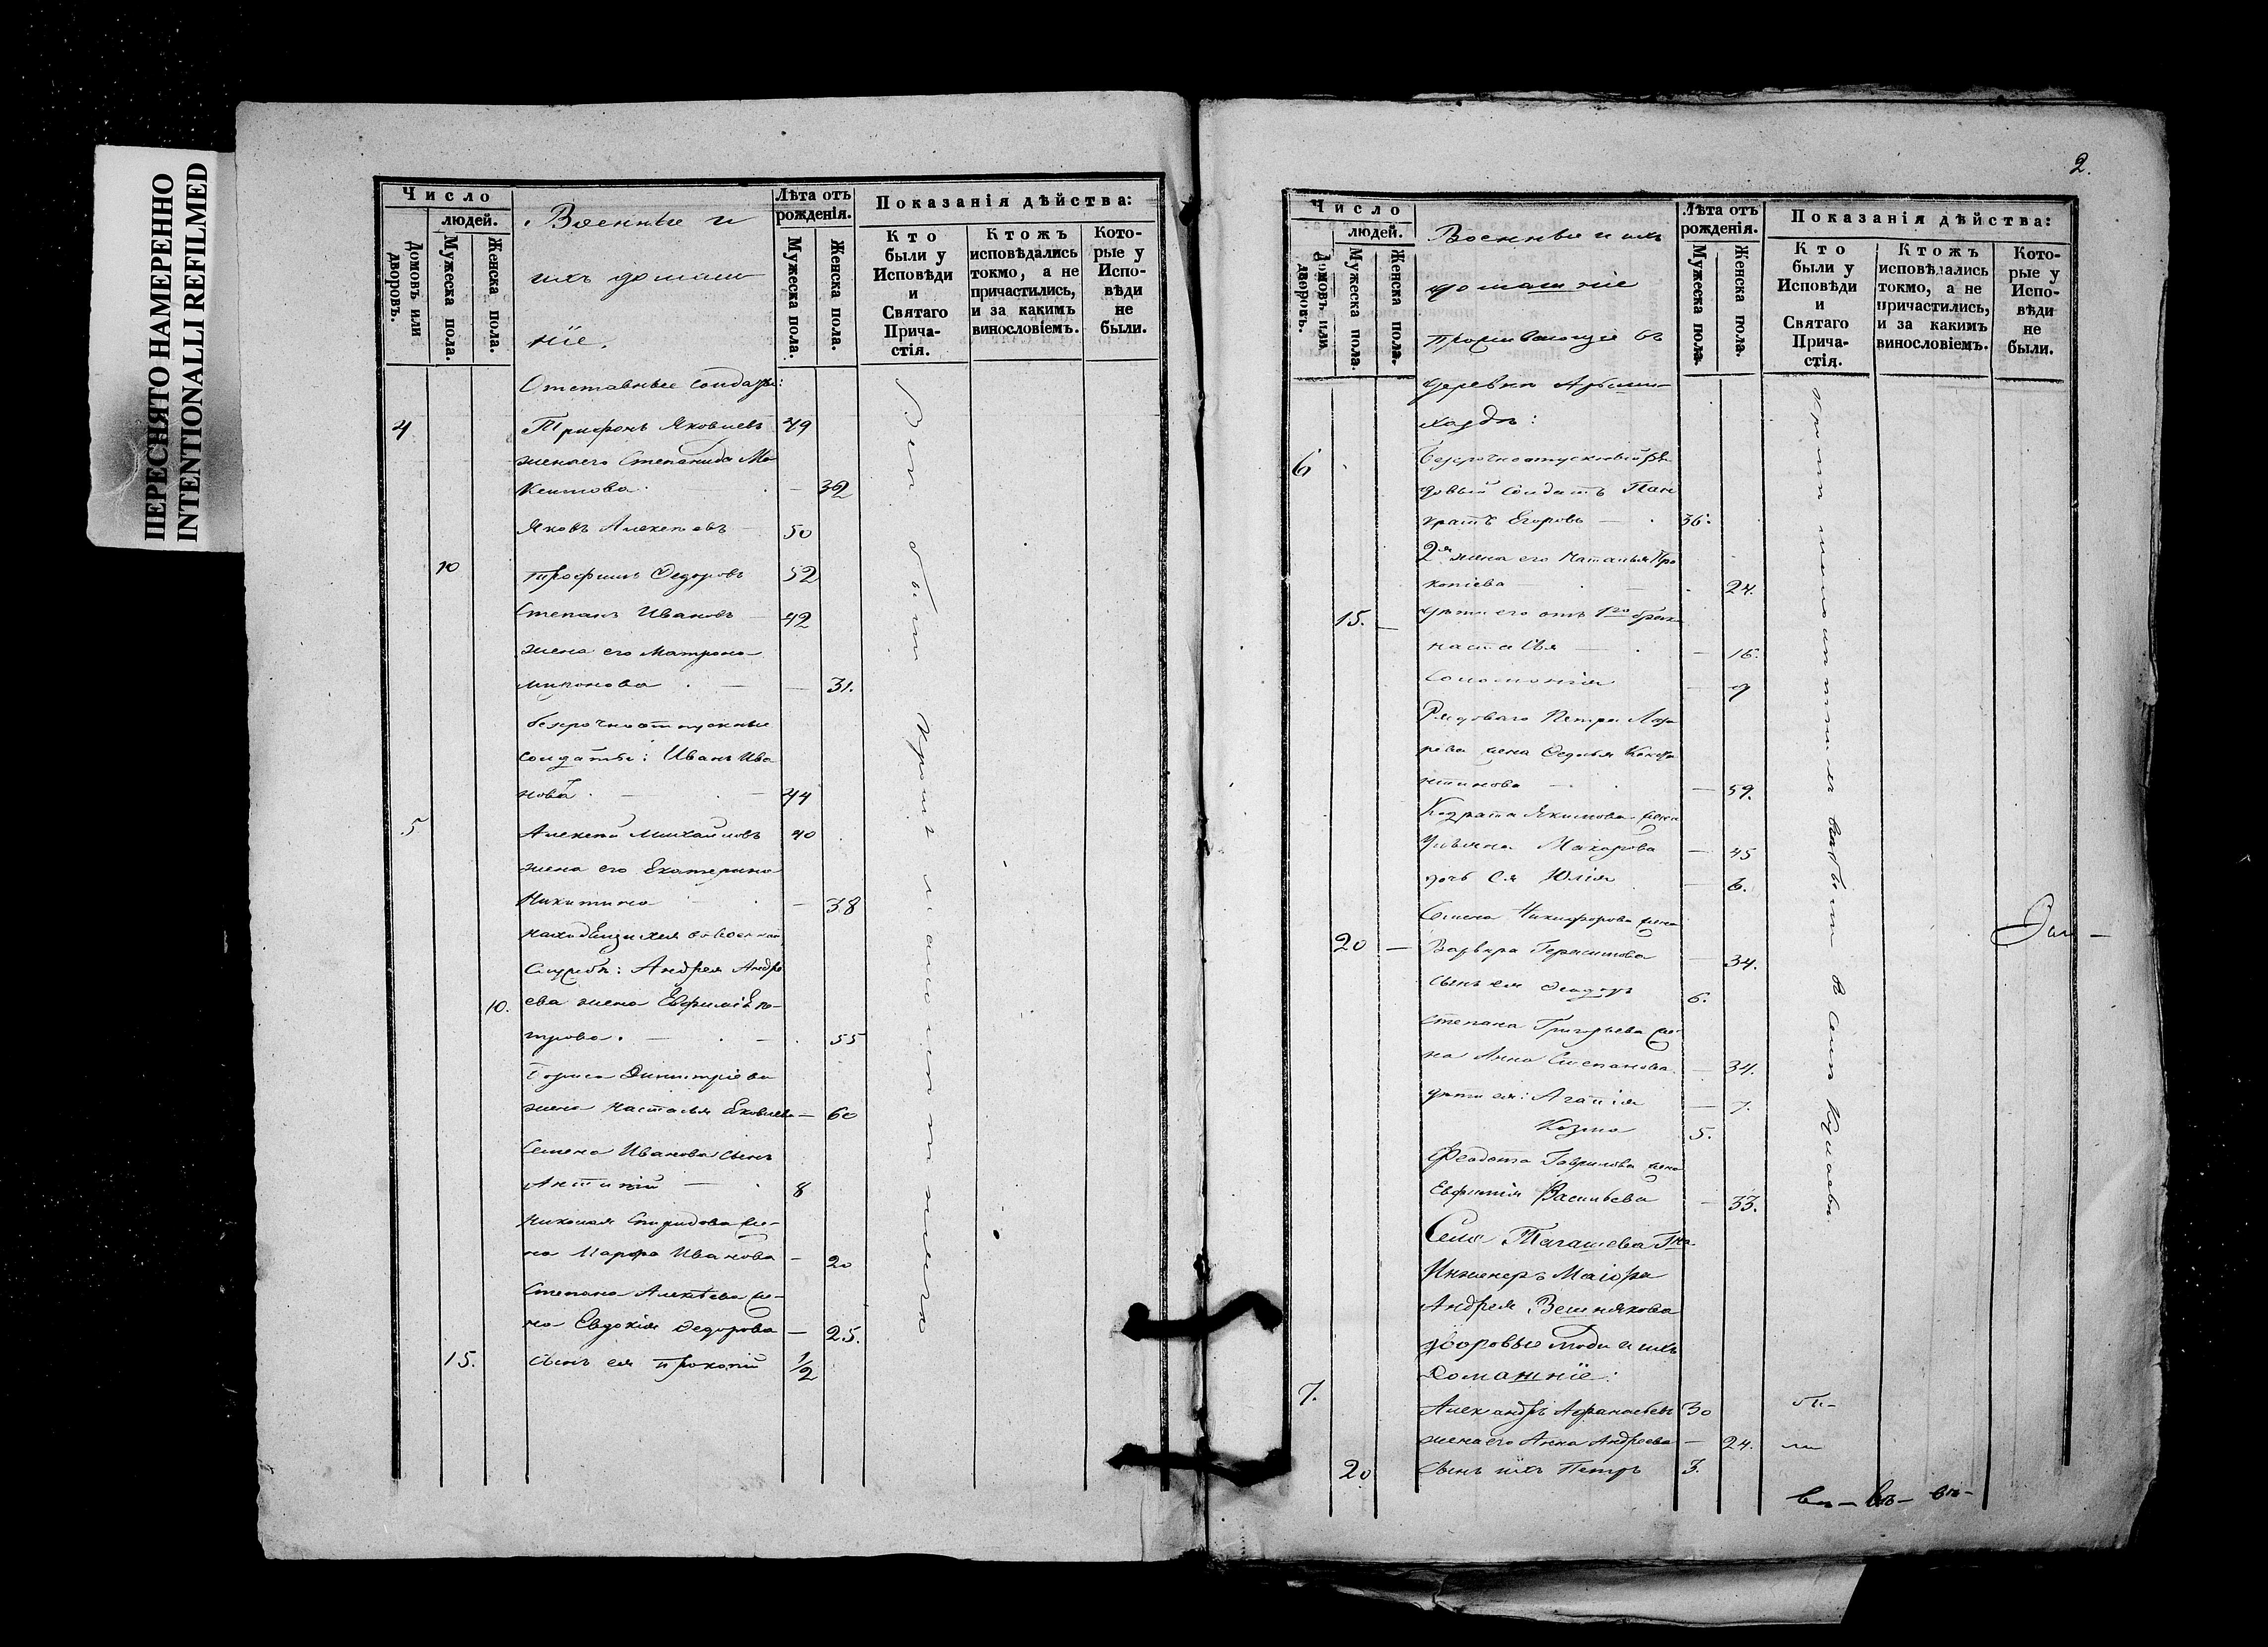 ПЕРЕСНЯТО НАМЕРЕННО
INTENTIONALLI REFILMED
Число
людей.
Домовъ или дворовъ.
Мужеска пола.
Женска пола.
Военные и
ихъ домаш
ніе.
Лѣта отъ рожденія.
Мужеска пола.
Женска пола.
Показанія дѣйства:
Кто были у Исповѣди и Святаго Причастія.
Ктожъ исповѣдались токмо, а не причастились, и за какимъ винословіемъ.
Которые у Исповѣди не были.
Отставные солдаты:
4 Трифонъ Яковлевъ 49
жена его Степанида Ма
ксимова — 32
Яковъ Алексѣевъ 50
10 Трофимъ Федоровъ 52
Степанъ Ивановъ 42
жена его Матрона
Миронова — 31.
безсрочноотпускные
солдаты: Иванъ Ива
новъ — 44
5 Алексѣй Михайловъ 40
жена его Екатерина
Никитина — 38
находящихся въ военной
службѣ: Андрея Андре
10. ева жена Евфимія Пе-
трова. — 55
Бориса Димитріева
жена Настасья Яковлева — 60
Семена Иванова сынъ
Антипій — 8
Николая Спиридова же-
на Марфа Иванова — 20
Степана Алексѣева же-
на Евдокія Федорова — 25.
15. сынъ ея Прокопій 1/2
Всѣ были кромѣ малолѣтнихъ
2.
Число
людей.
Домовъ или дворовъ.
Мужеска пола.
Женска пола.
Военные и ихъ
домашніе
проживающіе въ
Лѣта отъ рожденія.
Мужеска пола.
Женска пола.
Показанія дѣйства:
Кто были у Исповѣди и Святаго Причастія.
Ктожъ исповѣдались токмо, а не причастились, и за какимъ винословіемъ.
Которые у Исповѣди не были.
деревни
6 безсрочноотпускной ря
довый солдатъ Пан
кратъ Егоровъ — 36.
2я жена его Наталья Про
копіева — 24.
15. — дѣти его отъ 1го брака
Настасья — 16.
Соломонія — 9
Рядоваго Петра Лаза
рева жена Федосья Конста
нтинова — 59.
Кодрата Якимова жена
Ульяна Макарова — 45
дочь ея Юлія — 6.
Семена Никифорова жена
20 — Варвара Герасимова — 34.
сынъ ея Федоръ 6.
Степана Григорьева же-
на Анна Степанова — 34.
дѣти ея: Агапія — 7.
Козма 5.
Феодота Гаврилова жена
Евфимія Васильева — 33.
Села Тагашева Гна
Инженеръ Маіора
Андрея Вешнякова
дворовые люди и ихъ
Домашніе:
7. Александръ Афанасьевъ 30
жена его Анна Андреева — 24.
20. сынъ ихъ Петръ 3.
бы-
ли